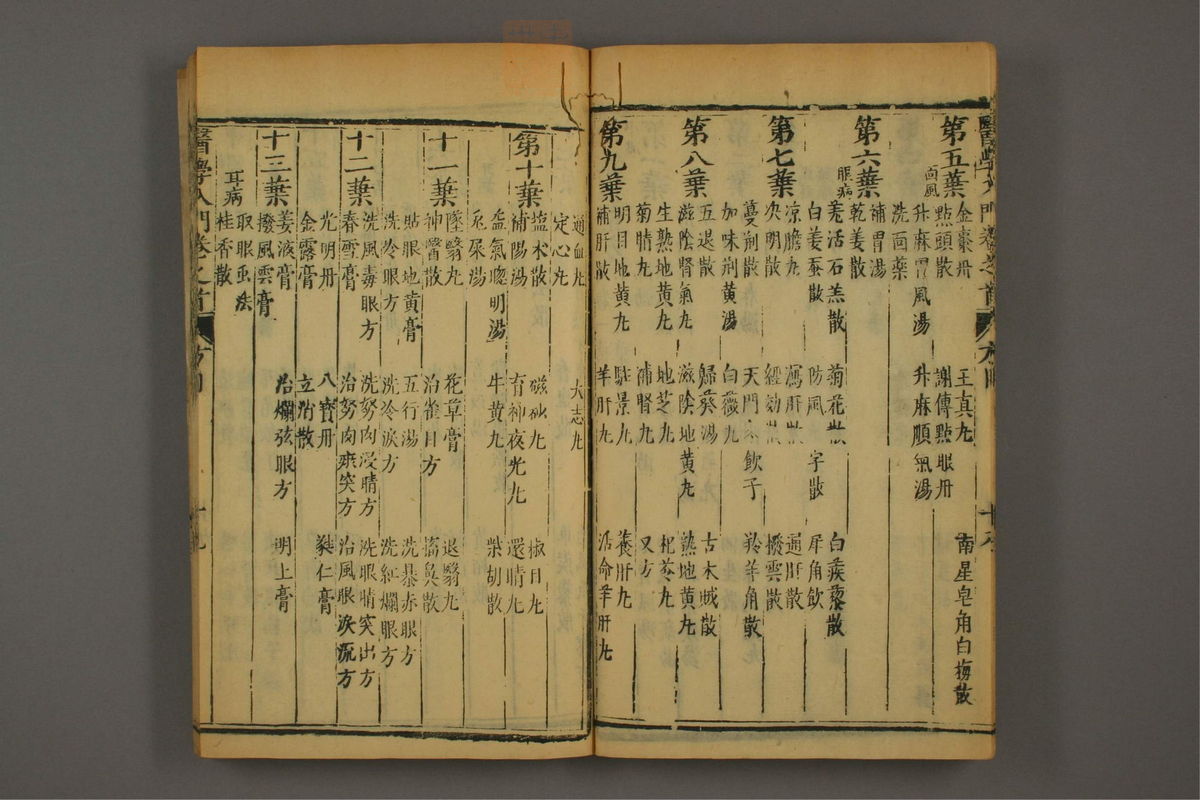 醫學入門卷之首
第五葉
面風
金棗丹 王真丸 南星皂角白梅散
點頭散 謝傳點眼丹
升麻胃風湯 升麻順氣湯
洗面藥
第六葉
眼病
補胃湯
乾姜散
羌活石羔散 菊花散 白蒺藜散
白姜蚕散 防風 字散 犀角飲
第七葉
凉膽丸 瀉肝散 通肝散
決明散 經効散 撥雲散
蔓荆散 天門 飲子 羚羊角散
加味荆黄湯 白薇丸
第八葉
五退散 歸葵湯 古木賊散
滋陰腎氣丸 滋陰地黄丸 熟地黄丸
生熟地黄丸 地芝丸 杞苓丸
菊晴丸 補腎丸 又方
第九葉
明目地黄丸 駐景丸 養肝丸
補肝散 羊肝丸 活命羊肝丸
通血丸 大志丸
定心丸
第十葉
盐术散 磁砂丸 椒目丸
補陽湯 育神夜光丸 還晴丸
益氣聰明湯 牛黄丸 柴胡散
兎屎湯
十一葉
墜翳丸 花草膏 退翳丸
神醫散 治雀目方 搐臭散
貼眼地黄膏 五行湯 洗暴赤眼方
洗冷眼方 洗冷淚方 洗紅爛眼方
十二葉
洗風毒眼方 洗努肉浸晴方 洗眼晴突出方
春雪膏 治努肉乘突方 治風眼淚流方
光明丹 八寳丹 蕤仁膏
金露膏 立消散
十三葉
姜液膏 治爛弦眼方 明上膏
撥風雲膏
取眼虫法
耳病
桂香散
醫學入門卷之首 方目 十九